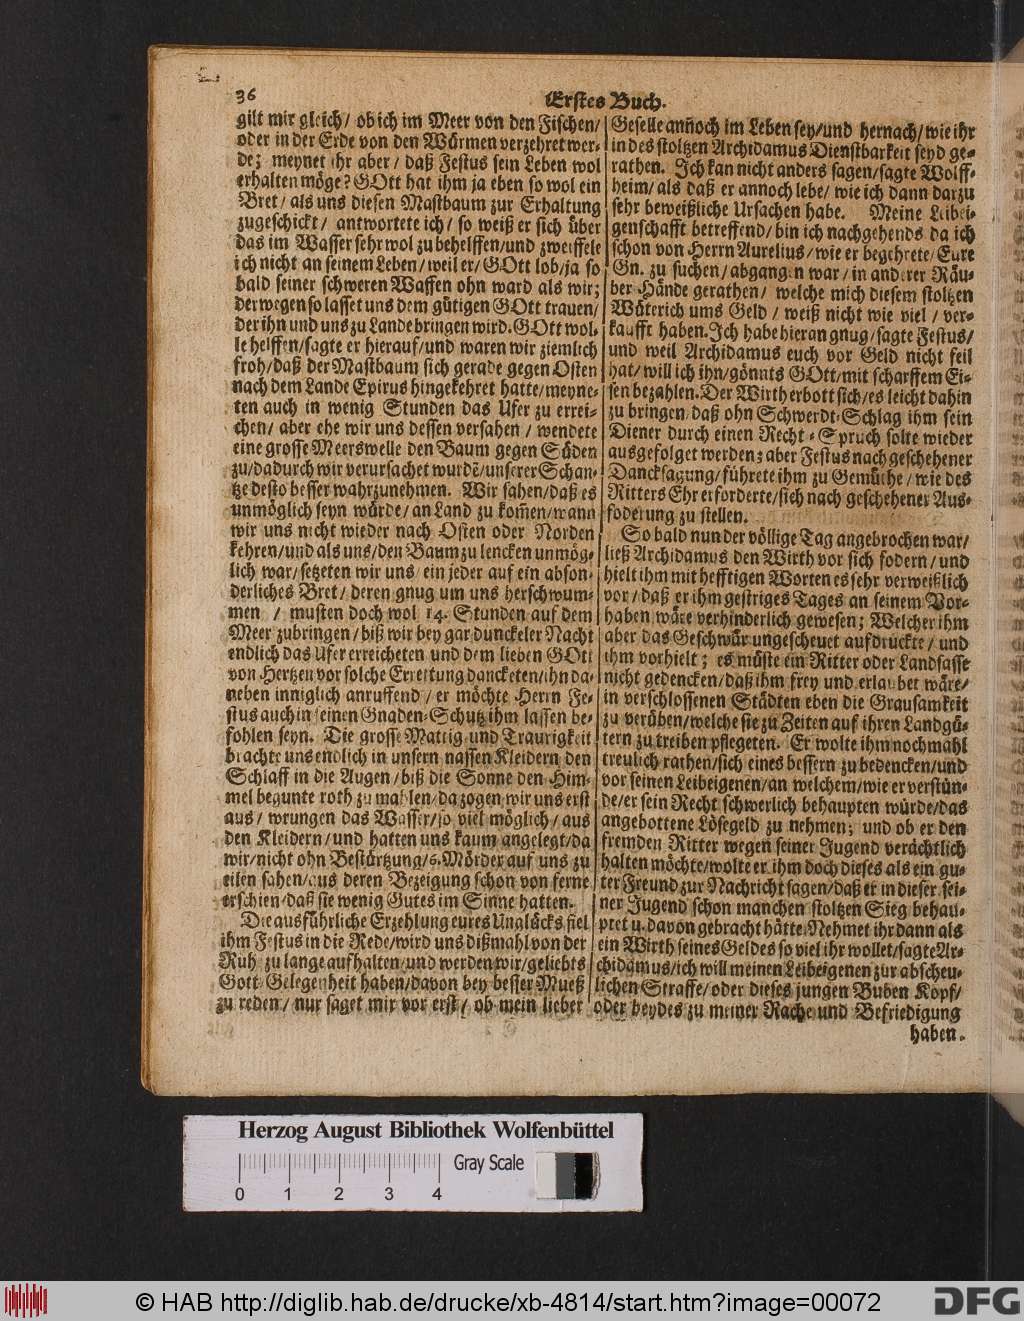 36
Erstes Buch.
gilt mir gleich/ ob ich im Meer von den Fischen/
oder in der Erde von den Würmen verzehret wer-
de; meynet ihr aber/ daß Festus sein Leben wol
erhalten möge? GOtt hat ihm ja eben so wol ein
Bret/ als uns diesen Mastbaum zur Erhaltung
zugeschickt/ antwortete ich/ so weiß er sich über
das im Wasser sehr wol zu behelffen/und zweiffele
ich nicht an seinem Leben/weil er/GOtt lob/ja so
bald seiner schweren Waffen ohn ward als wir;
derwegen so lasset uns dem gütigen GOtt trauen/
der ihn und uns zu Lande bringen wird. GOtt wol-
le helffen/sagte er hierauf/und waren wir ziemlich
froh/daß der Mastbaum sich gerade gegen Osten
nach dem Lande Epirus hingekehret hatte/meyne-
ten auch in wenig Stunden das Ufer zu errei-
chen/ aber ehe wir uns dessen versahen/ wendete
eine grosse Meerswelle den Baum gegen Süden
zu/dadurch wir verursachet wurdē/unserer Schan-
tze desto besser wahrzunehmen. Wir sahen/daß es
unmöglich seyn würde/an Land zu kom̃en/wann
wir uns nicht wieder nach Osten oder Norden
kehren/und als uns/den Baum zu lencken unmög-
lich war/setzeten wir uns/ein jeder auf ein abson-
derliches Bret/ deren gnug um uns herschwum-
men/ musten doch wol 14. Stunden auf dem
Meer zubringen/biß wir bey gar dunckeler Nacht
endlich das Ufer erreicheten und dem lieben GOtt
von Hertzen vor solche Errettung dancketen/ihn da-
neben inniglich anruffend/ er möchte Herrn Fe-
stus auch in seinen Gnaden-Schutz ihm lassen be-
fohlen seyn. Die grosse Mattig und Traurigkeit
brachte uns endlich in unsern nassen Kleidern den
Schlaff in die Augen/biß die Sonne den Him-
mel begunte roth zu mahlen/da zogen wir uns erst
aus/ wrungen das Wasser/so viel möglich/aus
den Kleidern/und hatten uns kaum angelegt/da
wir/nicht ohn Bestürtzung/6. Mörder auf uns zu
eilen sahen/aus deren Bezeigung schon von ferne
erschien/daß sie wenig Gutes im Sinne hatten.
Die ausführliche Erzehlung eures Unglücks fiel
ihm Festus in die Rede/wird uns dißmahl von der
Ruhe zu lange aufhalten/und werden wir/geliebts
Gott/Gelegenheit haben/davon bey besser Mueß
zu reden/ nur saget mir vor erst/ ob mein lieber
Geselle an̄och im Leben sey/und hernach/wie ihr
in des stoltzen Archidamus Dienstbarkeit seyd ge-
rathen. Ich kan nicht anders sagen/sagte Wolff-
heim/als daß er annoch lebe/wie ich dann darzu
sehr beweißliche Ursachen habe. Meine Leibei-
genschafft betreffend/bin ich nachgehends da ich
schon von Herrn Aurelius/wie er begehrete/Eure
Gn. zu suchen/abgangen war/in anderer Räu-
ber Hände gerathen/ welche mich diesem stoltzen
Wüterich ums Geld/ weiß nicht wie viel/ ver-
kaufft haben. Ich habe hieran gnug/sagte Festus/
und weil Archidamus euch vor Geld nicht feil
hat/will ich ihn/gönnts GOtt/mit scharffem Ei-
sen bezahlen. Der Wirth erbott sich/es leicht dahin
zu bringen/daß ohn Schwerdt-Schlag ihm sein
Diener durch einen Recht-Spruch solte wieder
ausgefolget werden; aber Festus nach geschehener
Dancksagung/führete ihm zu Gemüthe/wie des
Ritters Ehr erforderte/sich nach geschehener Aus-
foderung zu stellen.
So bald nun der völlige Tag angebrochen war/
ließ Archidamus den Wirth vor sich fodern/ und
hielt ihm mit hefftigen Worten es sehr verweißlich
vor/daß er ihm gestriges Tages an seinem Vor-
haben wäre verhinderlich gewesen; Welcher ihm
aber das Geschwür ungescheuet aufdruckte/ und
ihm vorhielt; es müste ein Ritter oder Landsasse
nicht gedencken/daß ihm frey und erlaubet wäre/
in verschlossenen Städten eben die Grausamkeit
zu verüben/welche sie zu Zeiten auf ihren Landgü-
tern zu treiben pflegeten. Er wolte ihm nochmahl
treulich rathen/sich eines bessern zu bedencken/und
vor seinen Leibeigenen/an welchem/wie er verstün-
de/er sein Recht schwerlich behaupten würde/das
angebottene Lösegeld zu nehmen; und ob er den
fremden Ritter wegen seiner Jugend verächtlich
halten möchte/wolte er ihm doch dieses als ein gu-
ter Freund zur Nachricht sagen/daß er in dieser sei-
ner Jugend schon manchen stoltzen Sieg behau-
ptet u. davon gebracht hätte. Nehmet ihr dann als
ein Wirth seines Geldes so viel ihr wollet/sagte Ar-
chidamus/ich will meinen Leibeigenen zur abscheu-
lichen Straffe/oder dieses jungen Buben Kopf/
oder beydes zu meiner Rache und Befriedigung
haben.
Herzog August Bibliothek Wolfenbüttel
Gray Scale
0 1 2 3 4
© HAB http://diglib.hab.de/drucke/xb-4814/start.htm?image=00072
DFG